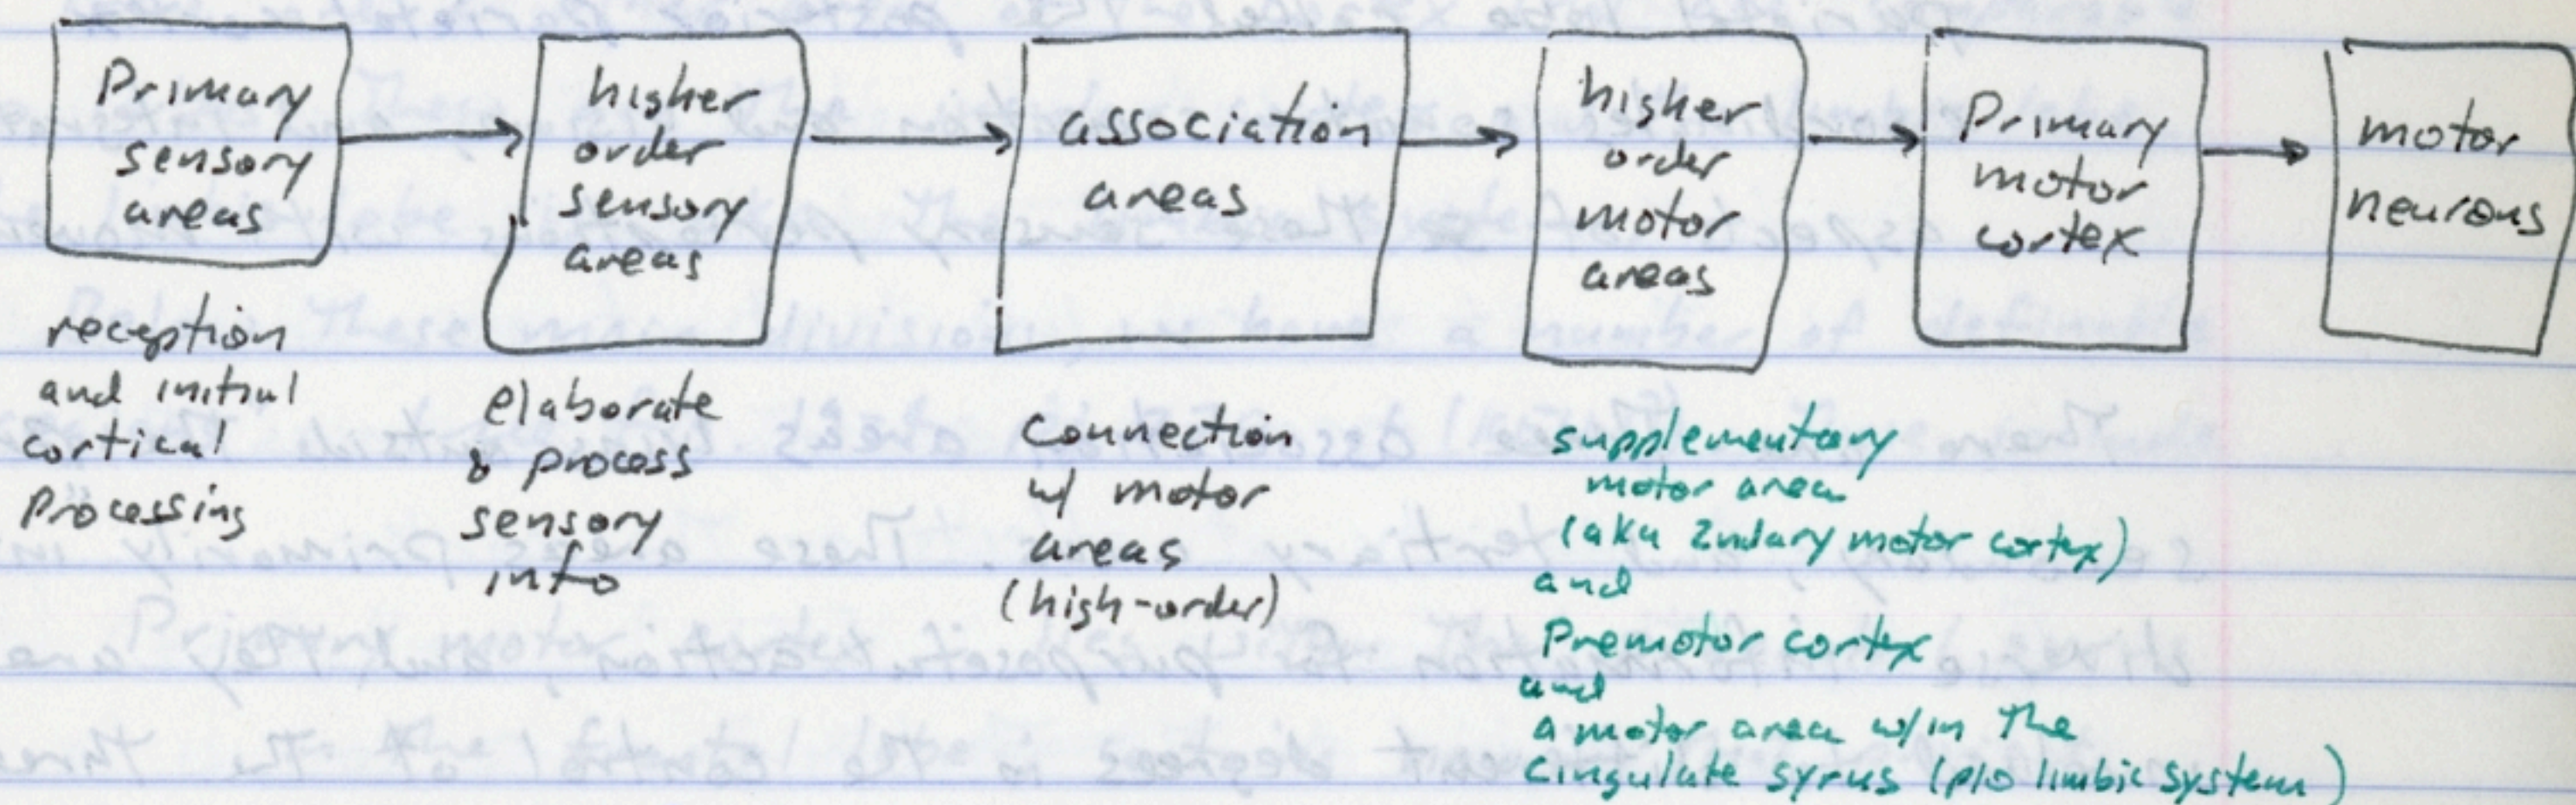 Primary
sensory
areas
higher
order
sensory
areas
association
areas
higher
order
motor
areas
Primary
motor
cortex
motor
neurons
reception
and initial
cortical
Processing
elaborate
& process
sensory
info
Connection
w/ motor
areas
(high-order)
supplementary
motor area
(aka 2ndary motor cortex)
and
Premotor cortex
and
a motor area w/in the
cingulate gyrus (p/o limbic system)